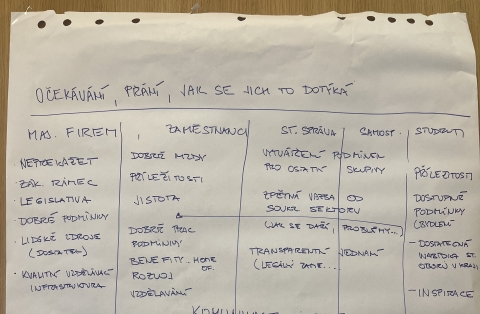 OČEKÁVÁNÍ, PŘÁNÍ, JAK SE JICH TO DOTÝKÁ
MAJ. FIREM
NEPŘEKÁŽET
- ZÁK. RÁMEC
- LEGISLATIVA
- DOBRÉ PODMÍNKY
- LIDSKÉ ZDROJE
(DOSTATEK)
- KVALITNÍ VZDĚLÁVACÍ
INFRASTRUKTURA
ZAMĚSTNANCI
DOBRÉ MZDY
PŘÍLEŽITOSTI
JISTOTA
&
DOBRÉ PRAC
PODMÍNKY
BENEFITY - HOME
OF.
ROZVOJ
VZDĚLÁVÁNÍ
ST. SPRÁVA
SAMOST.
VYTVÁŘENÍ PODMÍNEK
PRO OSTATNÍ SKUPINY
ZPĚTNÁ VAZBA OD
SOUKR SEKTORU
(JAK SE DAŘÍ, PROBLÉMY...)
TRANSPARENTNÍ JEDNÁNÍ
STUDENTI
PŘÍLEŽITOSTI
DOSTUPNÉ
PODMÍNKY
(BYDLENÍ)
- DOSTATEČNÁ
NABÍDKA ST.
OBORŮ V KRAJI
- INSPIRACE